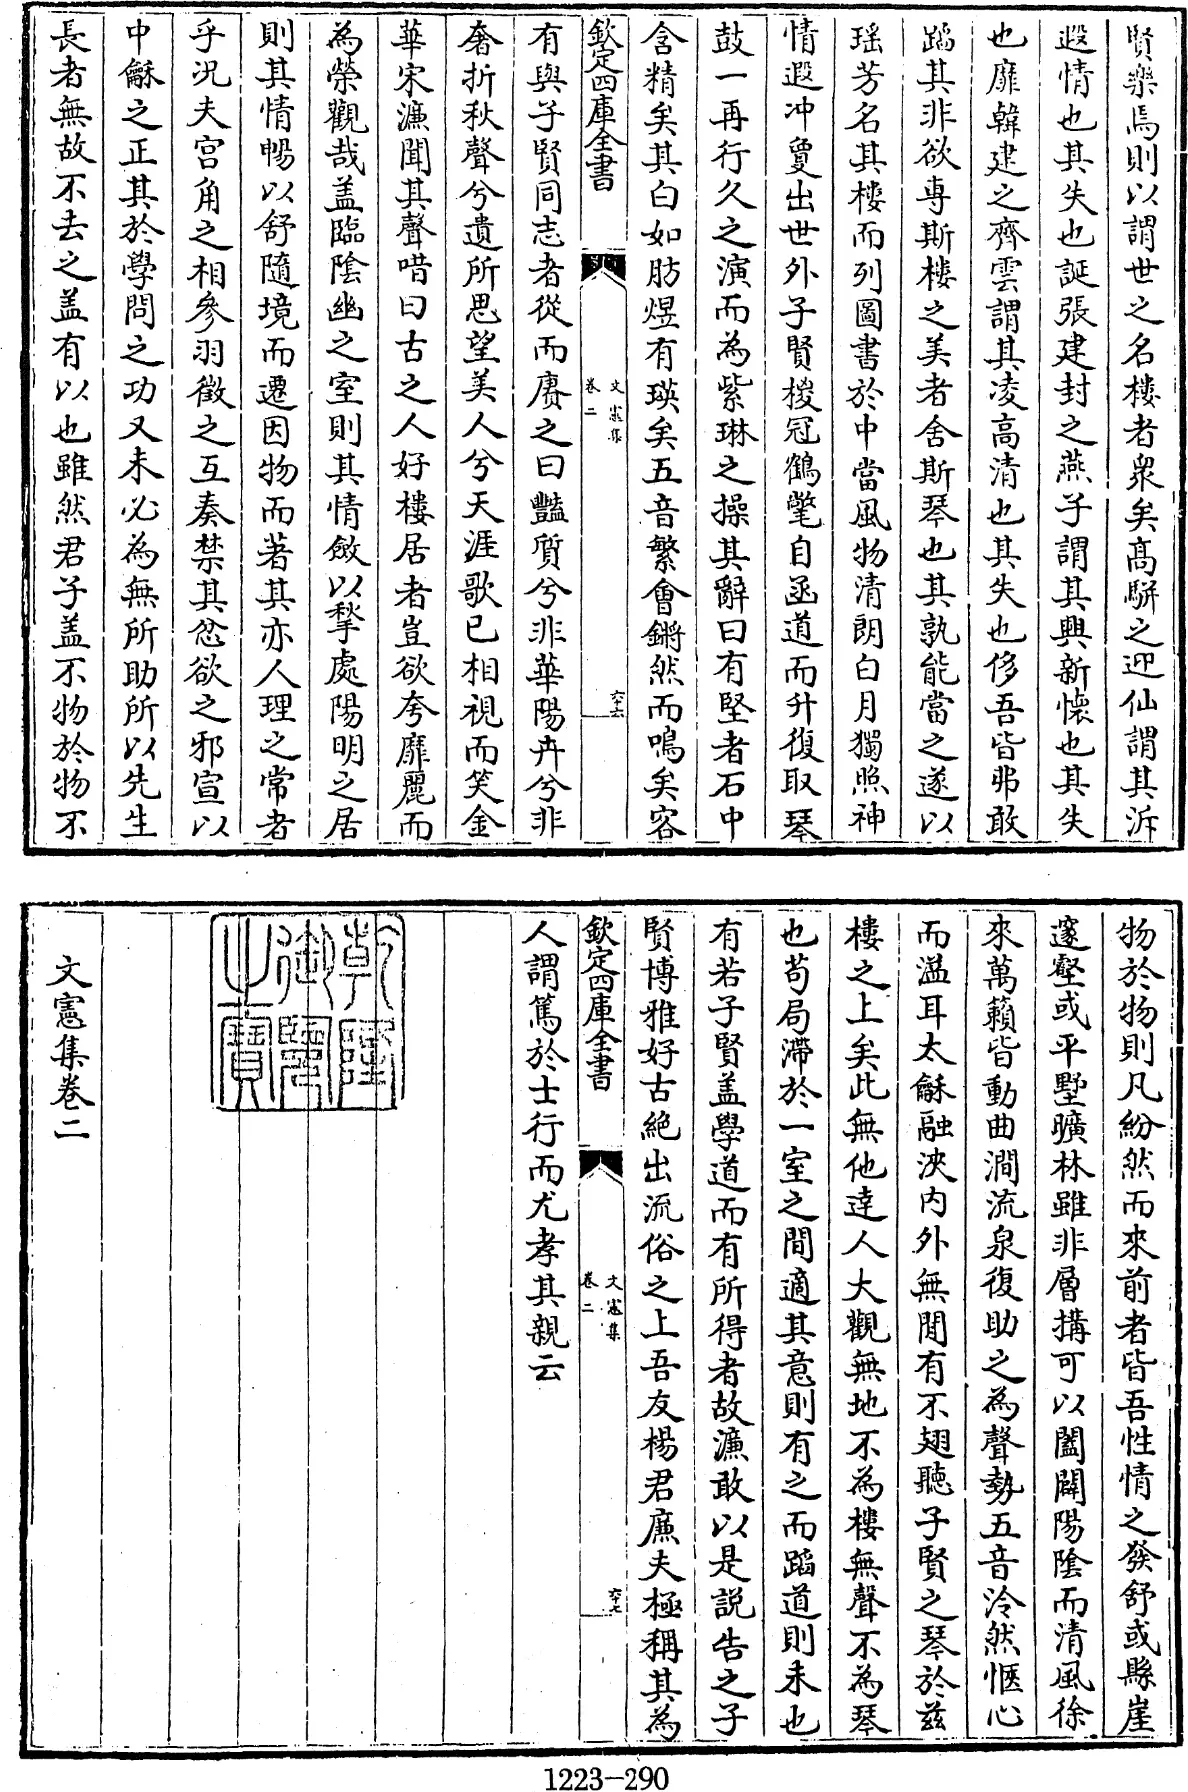 賢樂焉則以謂世之名樓者衆矣髙駢之迎仙謂其泝
遐情也其失也誕張建封之燕子謂其興新懐也其失
也靡韓建之齊雲謂其凌高清也其失也侈吾皆弗敢
蹈其非欲専斯樓之美者舍斯琴也其孰能當之遂以
瑶芳名其樓而列圖書於中當風物清朗白月獨照神
情遐冲敻出世外子賢椶冠鶴氅自函道而升復取琴
鼓一再行久之演而為紫琳之操其辭曰有堅者石中
含精矣其白如肪煜有瑛矣五音繁會鏘然而鳴矣客
欽定四庫全書
文憲集
卷二
六十六
有與子賢同志者從而賡之曰豔質兮非華陽卉兮非
奢折秋聲兮遺所思望美人兮天涯歌已相視而笑金
華宋濂聞其聲唶曰古之人好樓居者豈欲夸靡麗而
為榮觀哉盖臨陰幽之室則其情斂以揫處陽明之居
則其情暢以舒隨境而遷因物而著其亦人理之常者
乎况夫宫角之相參羽徵之互奏禁其忿欲之邪宣以
中龢之正其於學問之功又未必為無所助所以先生
長者無故不去之盖有以也雖然君子盖不物於物不
物於物則凡紛然而來前者皆吾性情之發舒或縣崖
邃壑或平墅曠林雖非層搆可以闔闢陽陰而清風徐
來萬籟皆動曲澗流泉復助之為聲勢五音泠然愜心
而溢耳太龢融浹内外無間有不翅聽子賢之琴於兹
樓之上矣此無他逹人大觀無地不為樓無聲不為琴
也苟局滯於一室之間適其意則有之而蹈道則未也
有若子賢盖學道而有所得者故濂敢以是説告之子
賢博雅好古絶出流俗之上吾友楊君廉夫極稱其為
欽定四庫全書
文憲集
卷二
六十七
人謂篤於士行而尤孝其親云
乾隆
御覽
之寶
文憲集卷二
1223-290